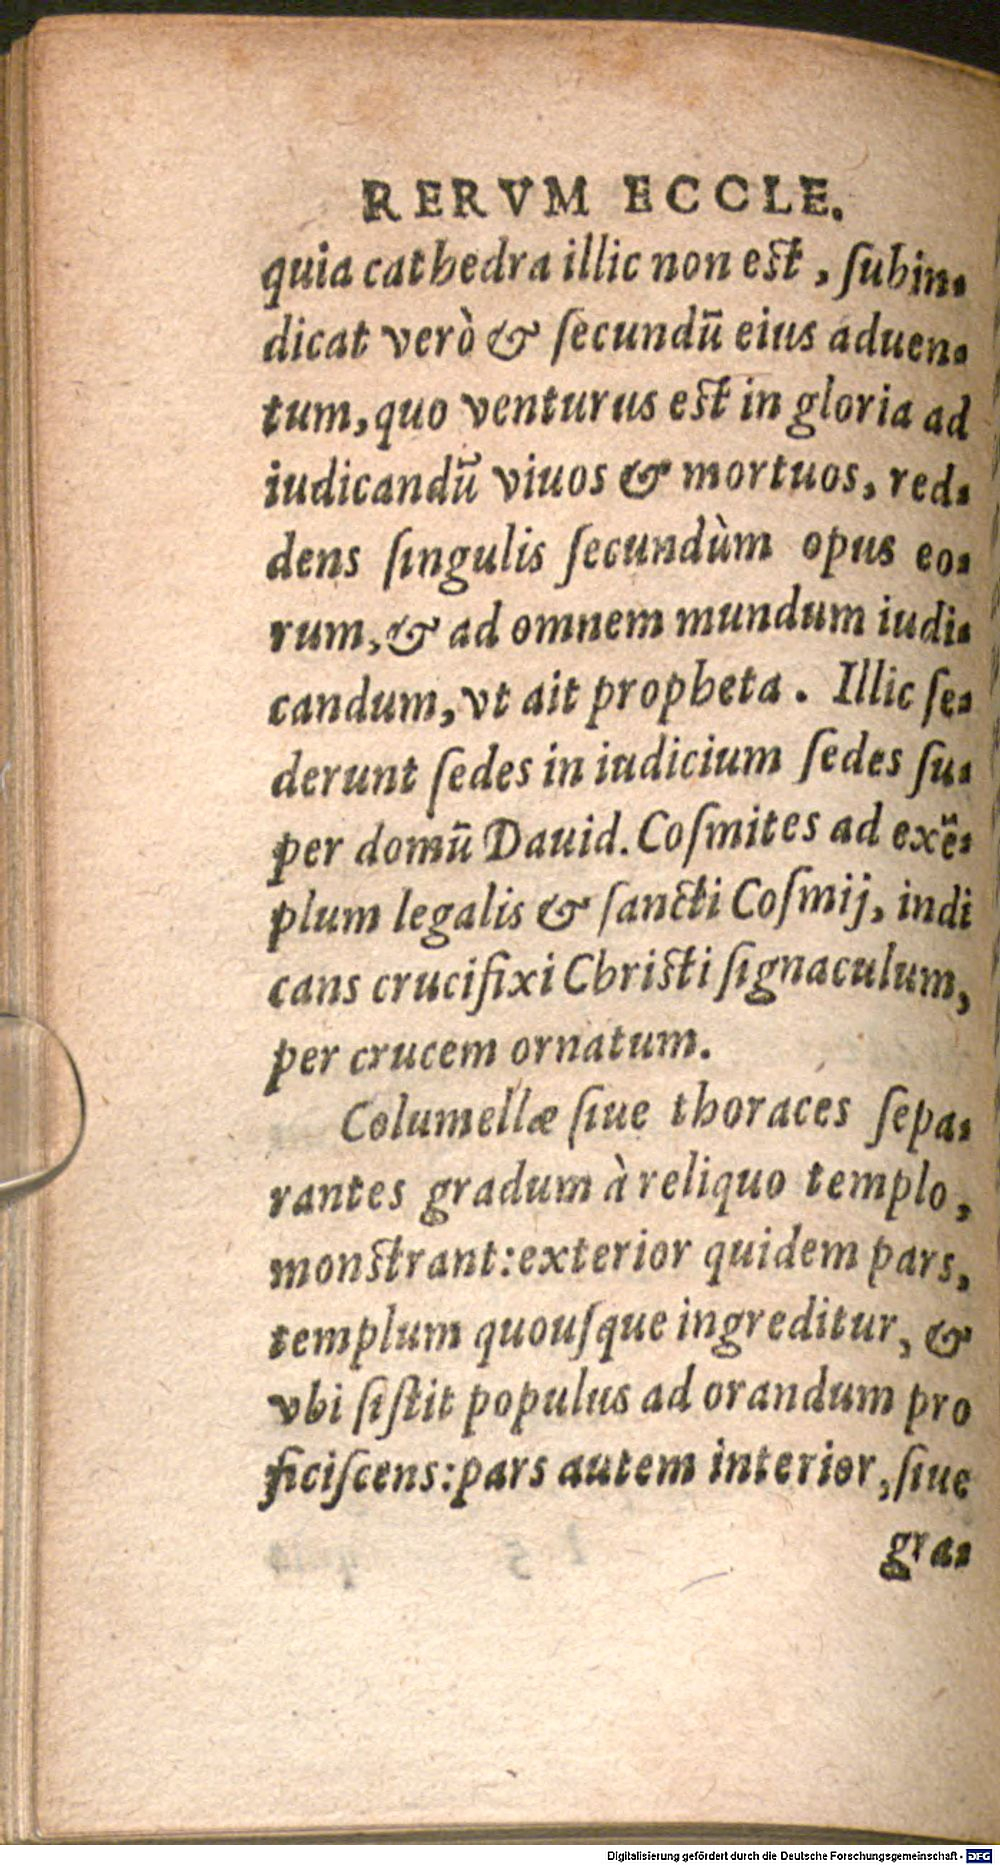 RERVM ECCLE.
quia cathedra illic non est, ſubin-
dicat verò & ſecundū eius aduen-
tum, quo venturus est in gloria ad
iudicandū viuos & mortuos, red-
dens ſingulis ſecundùm opus eo-
rum, & ad omnem mundum iudi-
candum, vt ait propheta. Illic ſe-
derunt ſedes in iudicium ſedes ſu-
per domū Dauid. Coſmites ad exē-
plum legalis & ſancti Coſmij, indi
cans crucifixi Christi ſignaculum,
per crucem ornatum.
Columellæ ſiue thoraces ſepa-
rantes gradum à reliquo templo,
monstrant: exterior quidem pars,
templum quouſque ingreditur, &
vbi ſiſtit populus ad orandum pro
ficiſcens: pars autem interior, ſiue
gra-
Digitalisierung gefördert durch die Deutsche Forschungsgemeinschaft - DFG